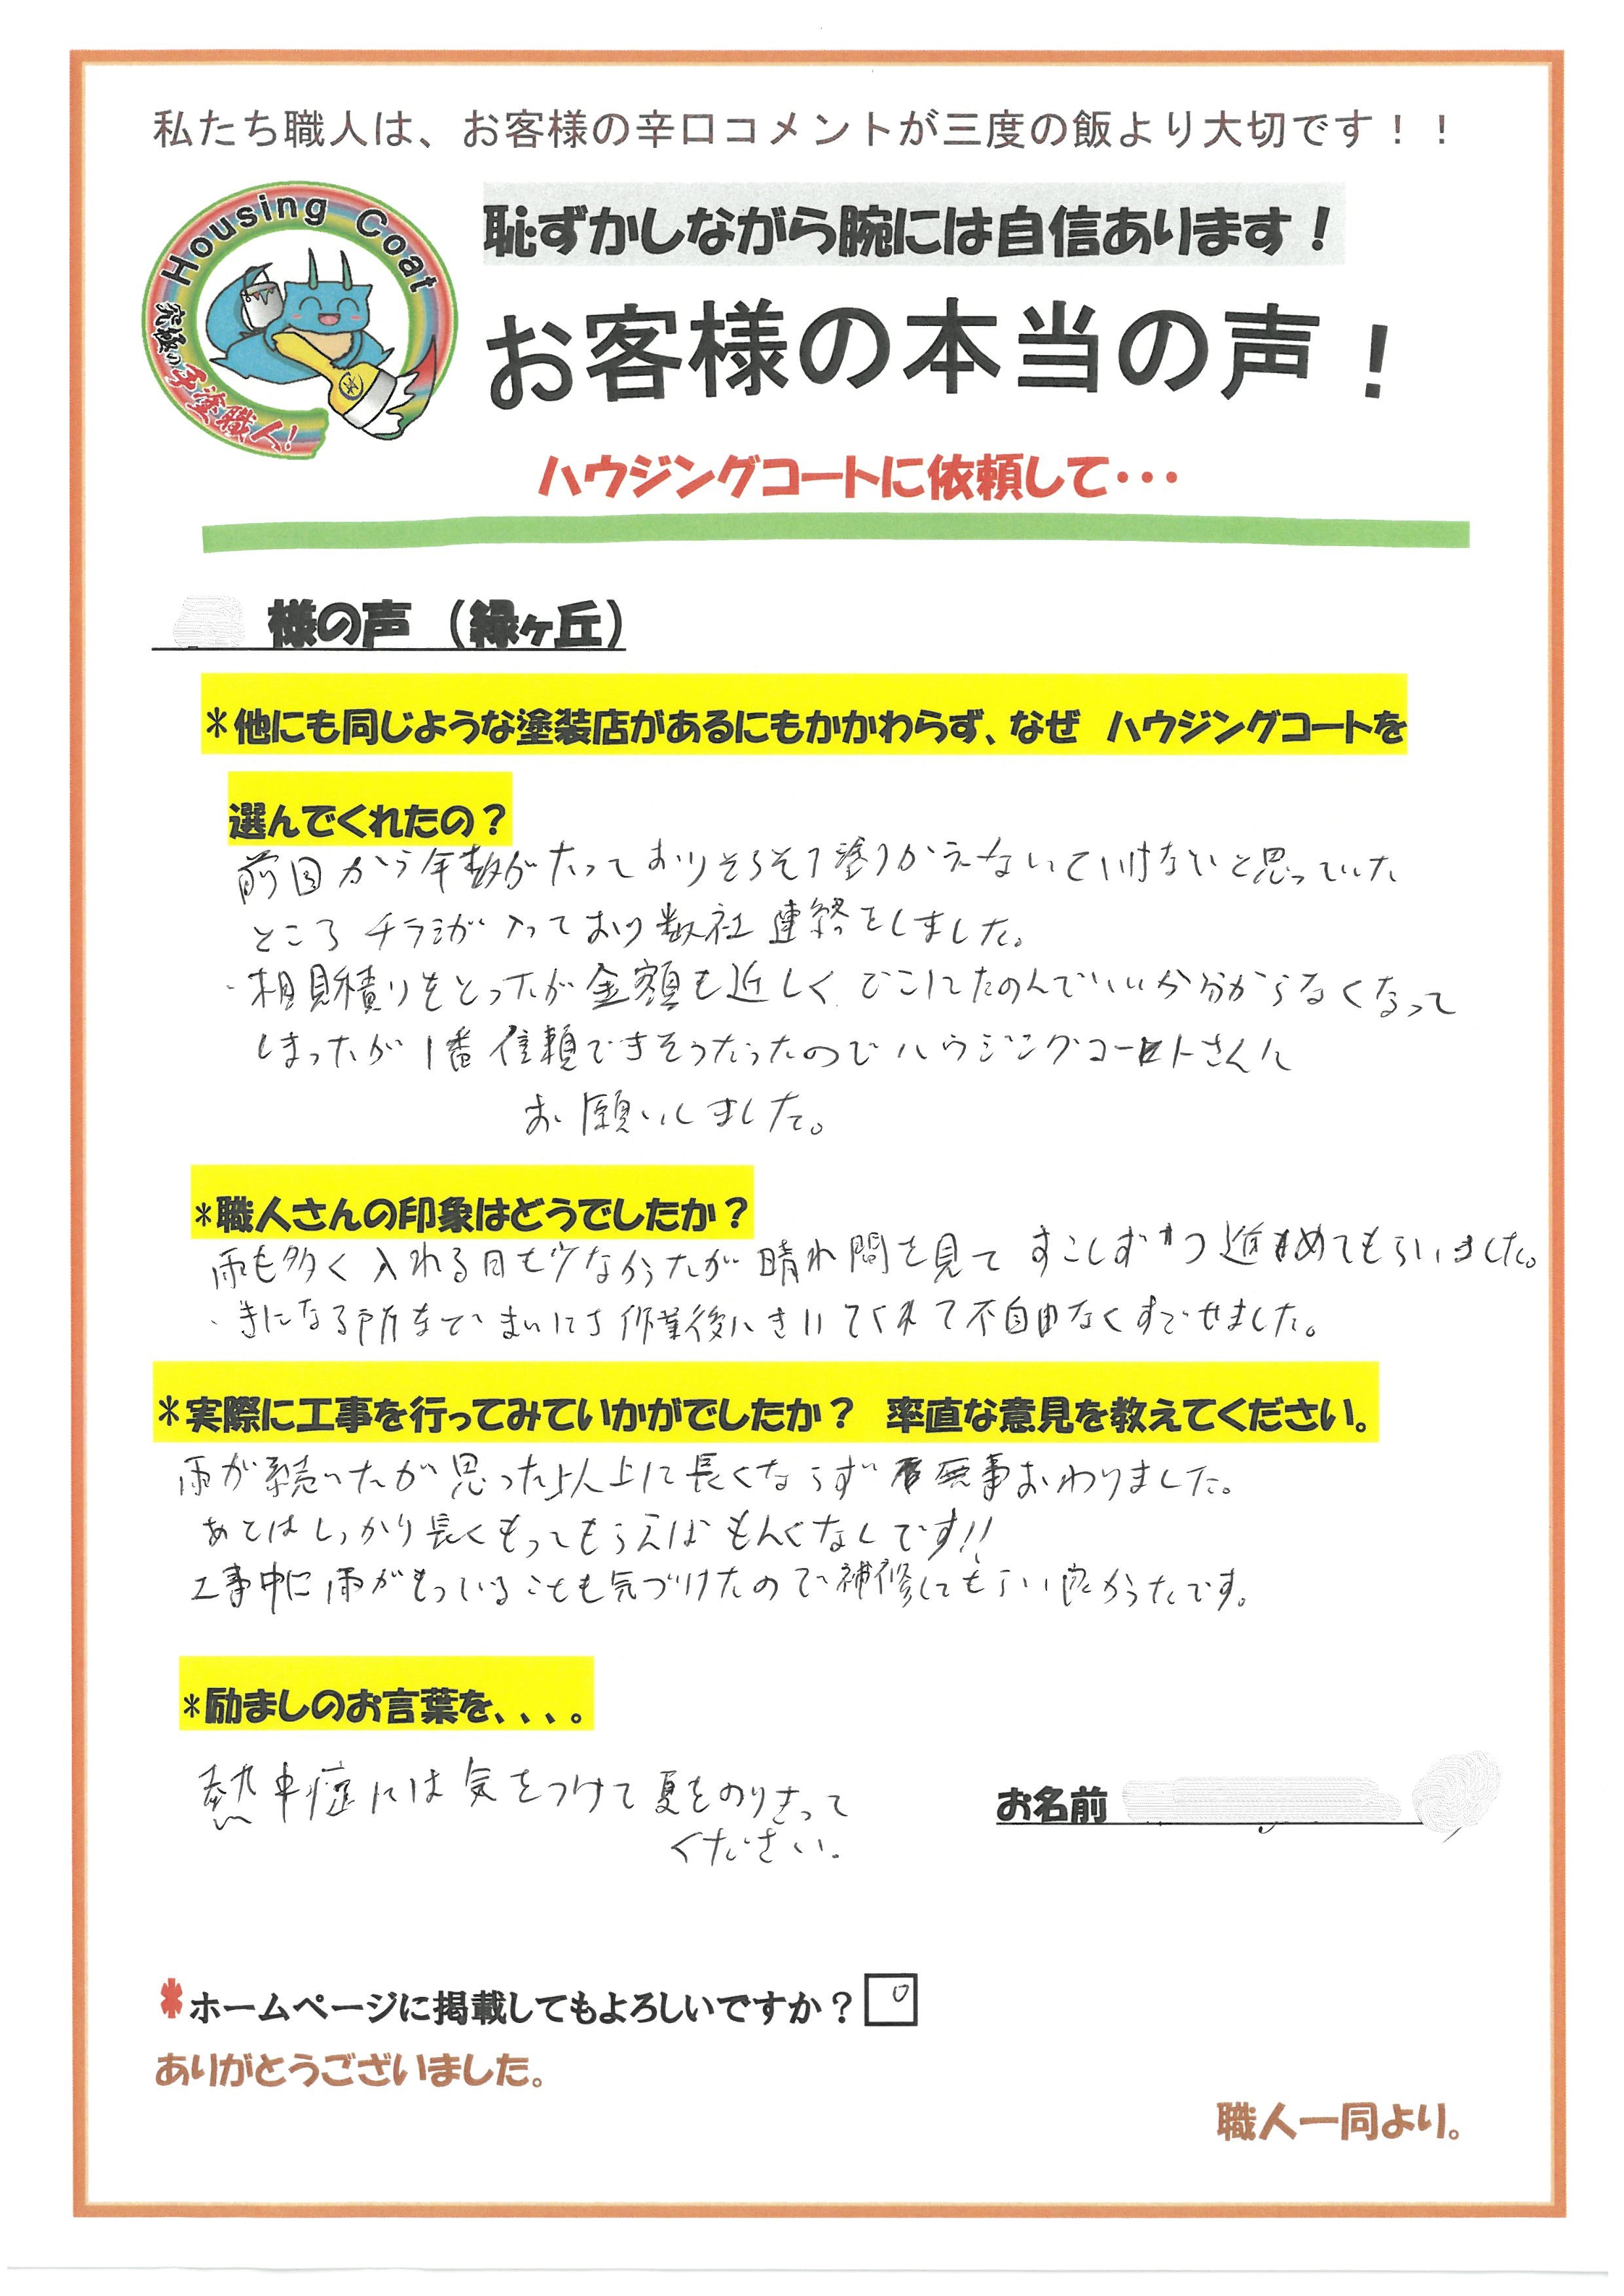 私たち職人は、お客様の辛口コメントが三度の飯より大切です！！
Housing Coat
究極の手塗職人！
恥ずかしながら腕には自信あります！
お客様の本当の声！
ハウジングコートに依頼して・・・
様の声（緑ヶ丘）
＊他にも同じような塗装店があるにもかかわらず、なぜ　ハウジングコートを
選んでくれたの？
前回から年数がたっておりそろそろ塗りかえないといけないと思っていた
ところ チラシが入っており数社 連絡をしました。
・相見積りをとったが金額も近しく どこにたのんでいいか分からなくなって
しまったが1番信頼できそうだったのでハウジングコートさんに
お願いしました。
＊職人さんの印象はどうでしたか？
雨も多く入れる日も少なかったが晴れ間を見て すこしずつ進めてもらいました。
・きになる所など まいにち作業後にきいてくれて不自由なくすごせました。
＊実際に工事を行ってみていかがでしたか？　率直な意見を教えてください。
雨が続いたが思った以上に長くならず 無事おわりました。
あとはしっかり長くもってもらえばもんくなしです!!
工事中に雨がもっていることも気づけたので補修してもらい良かったです。
＊励ましのお言葉を、、、。
熱中症には気をつけて夏をのりきって
ください。
お名前
＊ホームページに掲載してもよろしいですか？ ○
ありがとうございました。
職人一同より。